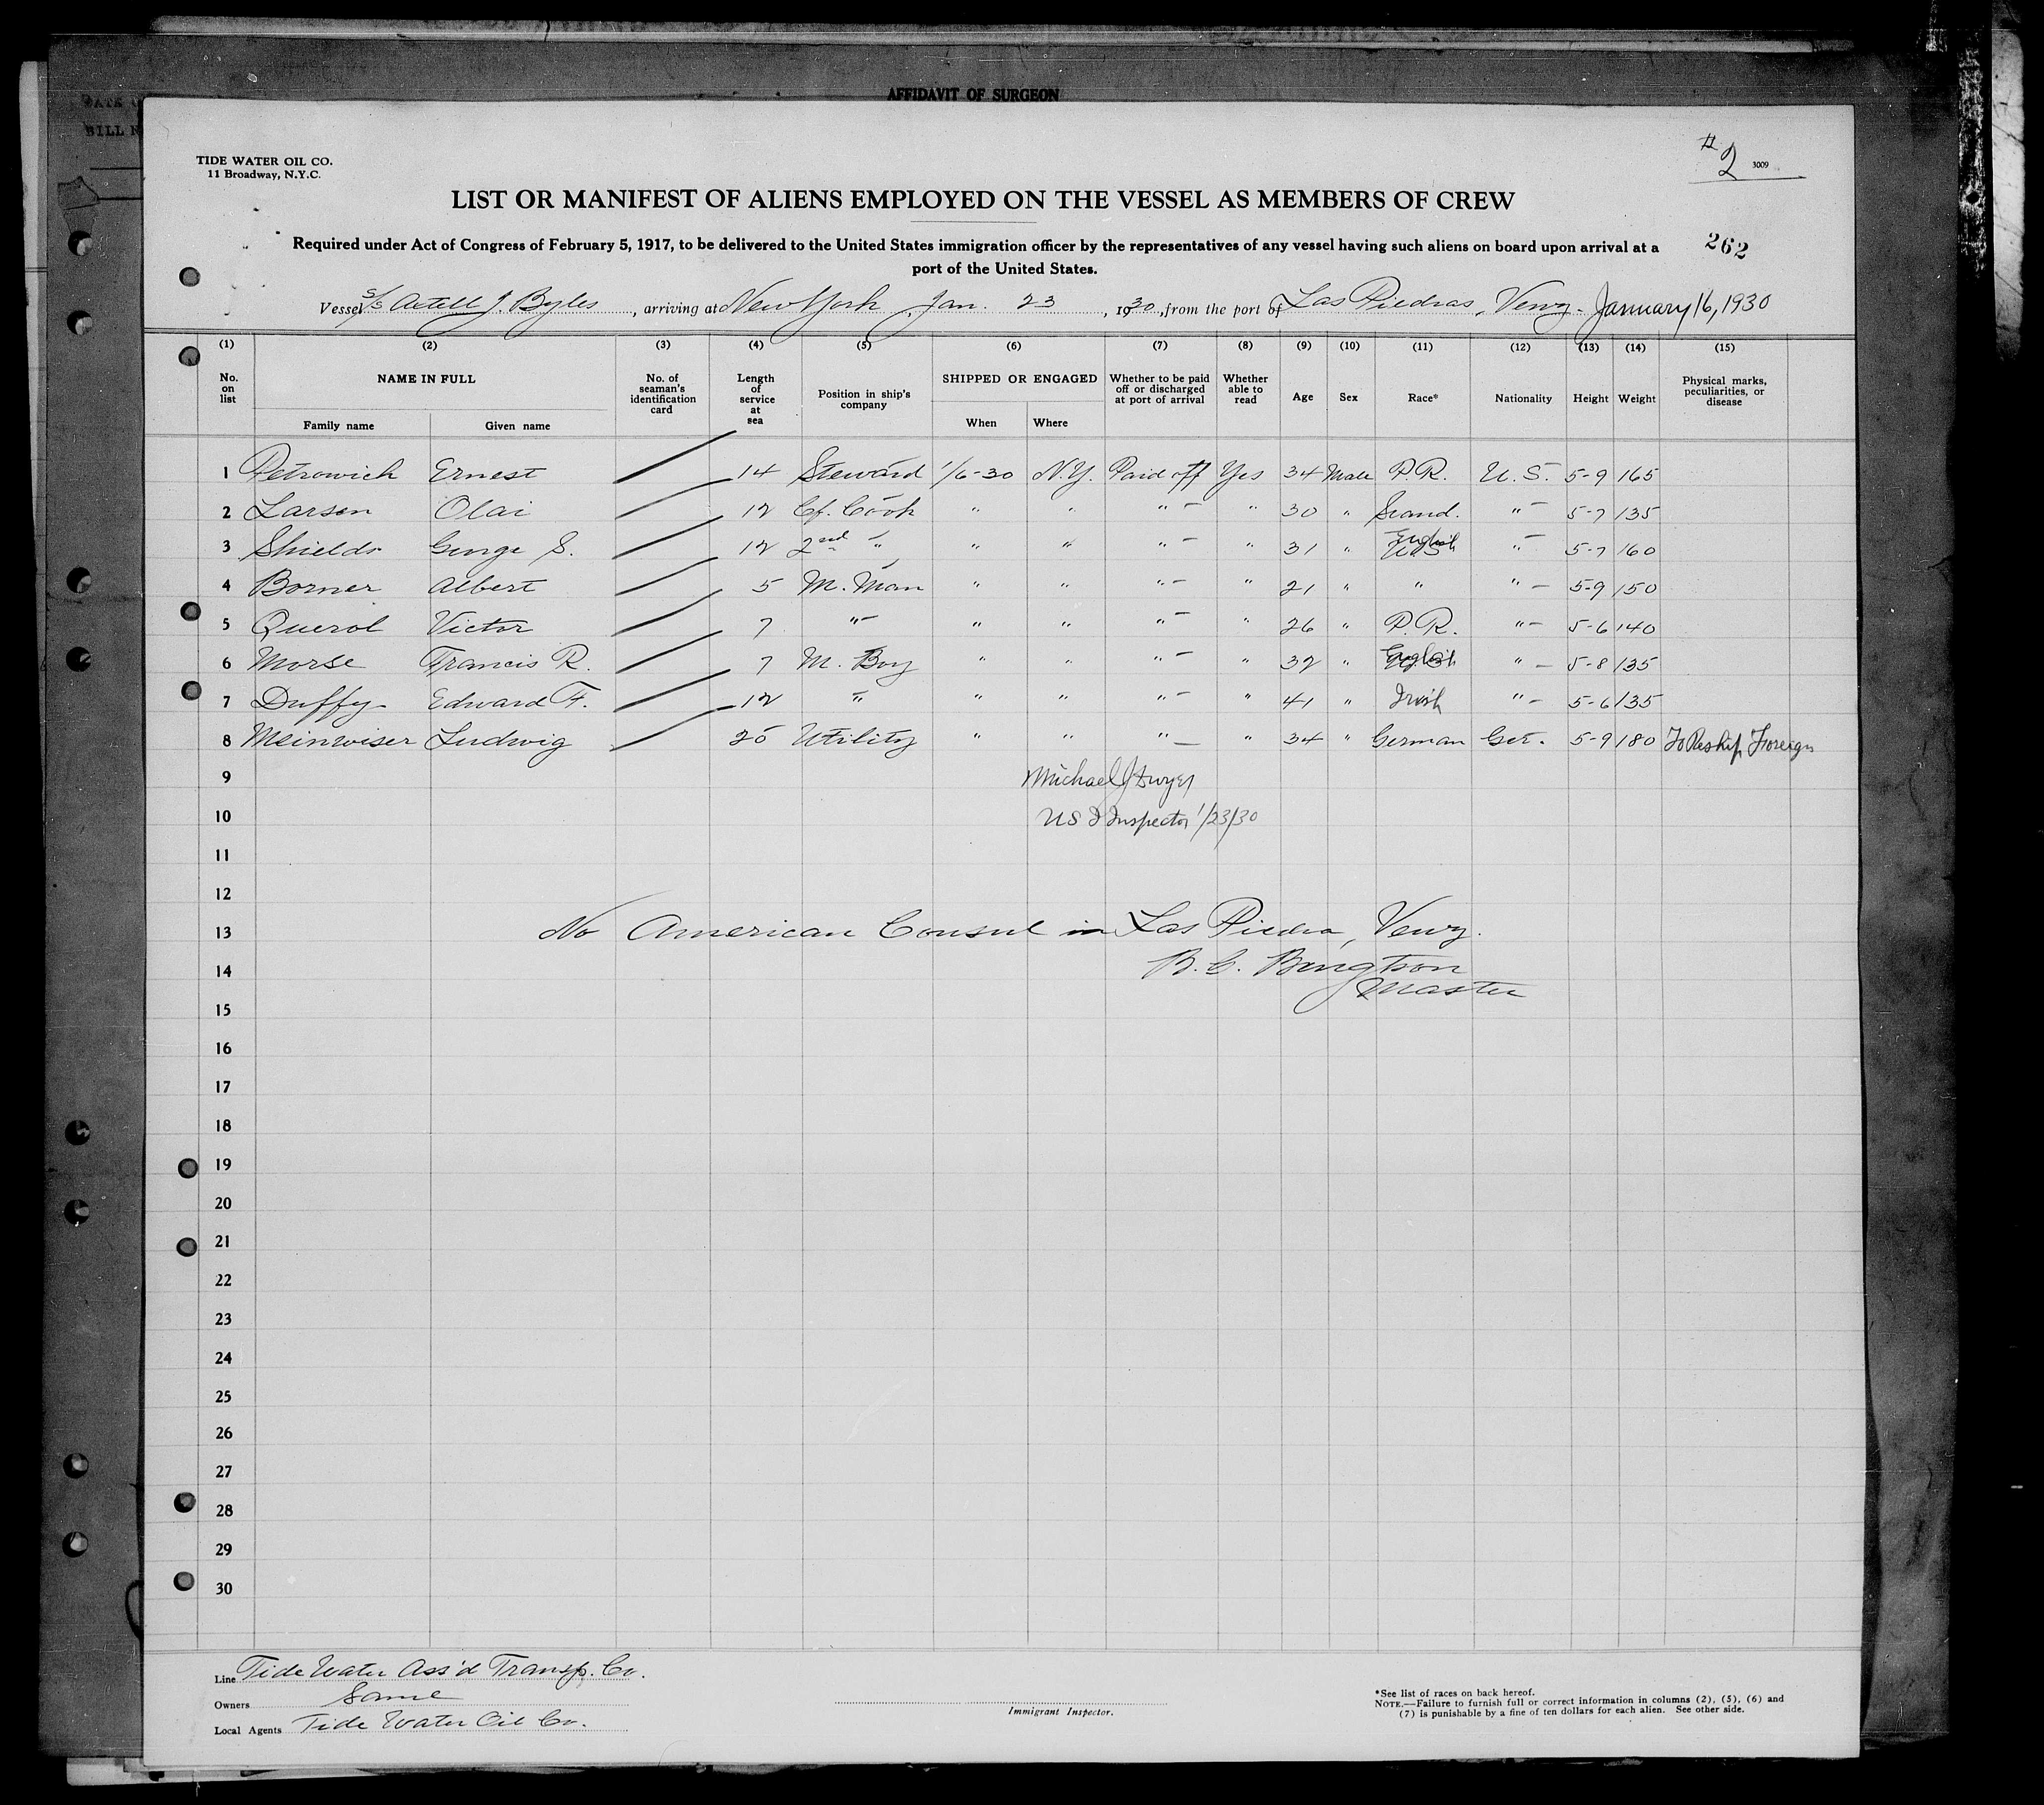 AFFIDAVIT OF SURGEON
BILL N
TIDE WATER OIL CO.
11 Broadway, N.Y.C.
# 2 3009
LIST OR MANIFEST OF ALIENS EMPLOYED ON THE VESSEL AS MEMBERS OF CREW
Required under Act of Congress of February 5, 1917, to be delivered to the United States immigration officer by the representatives of any vessel having such aliens on board upon arrival at a
port of the United States.
262
Vessel S/S Axtell J. Byles, arriving at New York, Jan. 23, 1930, from the port of Las Piedras, Venz. January 16, 1930
(1) (2) (3) (4) (5) (6) (7) (8) (9) (10) (11) (12) (13) (14) (15)
No. on list NAME IN FULL Family name Given name No. of seaman's identification card Length of service at sea Position in ship's company SHIPPED OR ENGAGED When Where Whether to be paid off or discharged at port of arrival Whether able to read Age Sex Race* Nationality Height Weight Physical marks, peculiarities, or disease
1 Petrowich Ernest 14 Steward 1/6-30 N.Y. Paid off Yes 34 Male P.R. U.S. 5-9 165
2 Larsen Olai 12 Cf. Cook " " " - " 30 " Scand. " - 5-7 135
3 Shields George S. 12 2nd " " " " - " 31 " English " - 5-7 160
4 Borner Albert 5 M. Man " " " - " 21 " " " - 5-9 150
5 Querol Victor 7 " - " " " - " 26 " P.R. " - 5-6 140
6 Morse Francis R. 7 M. Boy " " " - " 32 " English " - 5-8 135
7 Duffy Edward F. 12 " " " " - " 41 " Irish " - 5-6 135
8 Meinwiser Ludwig 25 Utility " " " - " 34 " German Ger. 5-9 180 To Reship Foreign
9 Michael J Dwyer
10 US I Inspector 1/23/30
11
12
13 No American Consul in Las Piedra, Venz.
14 B. C. Bengtson
Master
15
16
17
18
19
20
21
22
23
24
25
26
27
28
29
30
Line Tide Water Ass'd Transp. Co.
Owners Same
Local Agents Tide Water Oil Co.
Immigrant Inspector.
*See list of races on back hereof.
NOTE.—Failure to furnish full or correct information in columns (2), (5), (6) and
(7) is punishable by a fine of ten dollars for each alien. See other side.